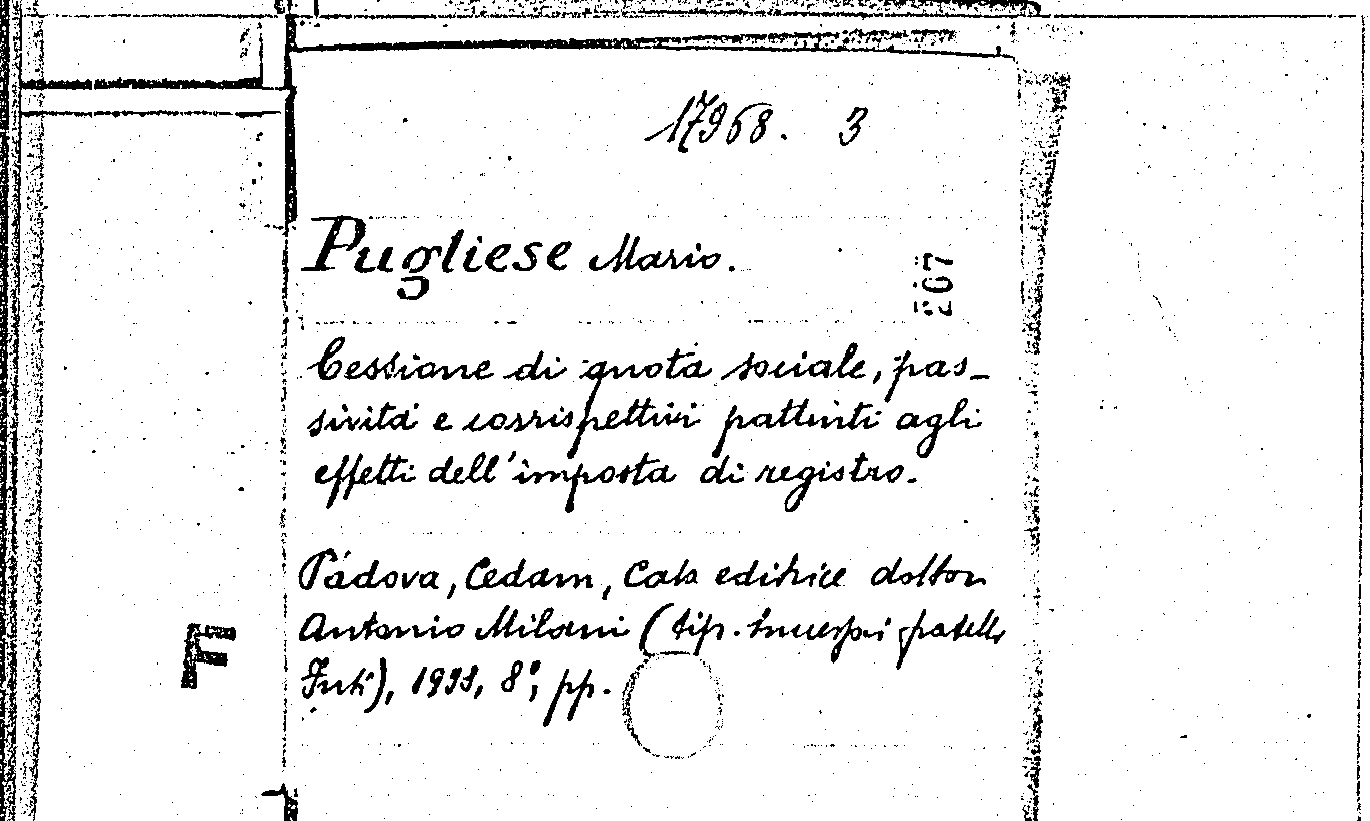 17968. 3
Pugliese Mario.
267
Cessione di quota sociale, pas-
sività e corrispettivi pattuiti agli
effetti dell'imposta di registro.
Padova, Cedam, Casa editrice dottor
Antonio Milani (tip. fratelli
), 8°, pp.
F